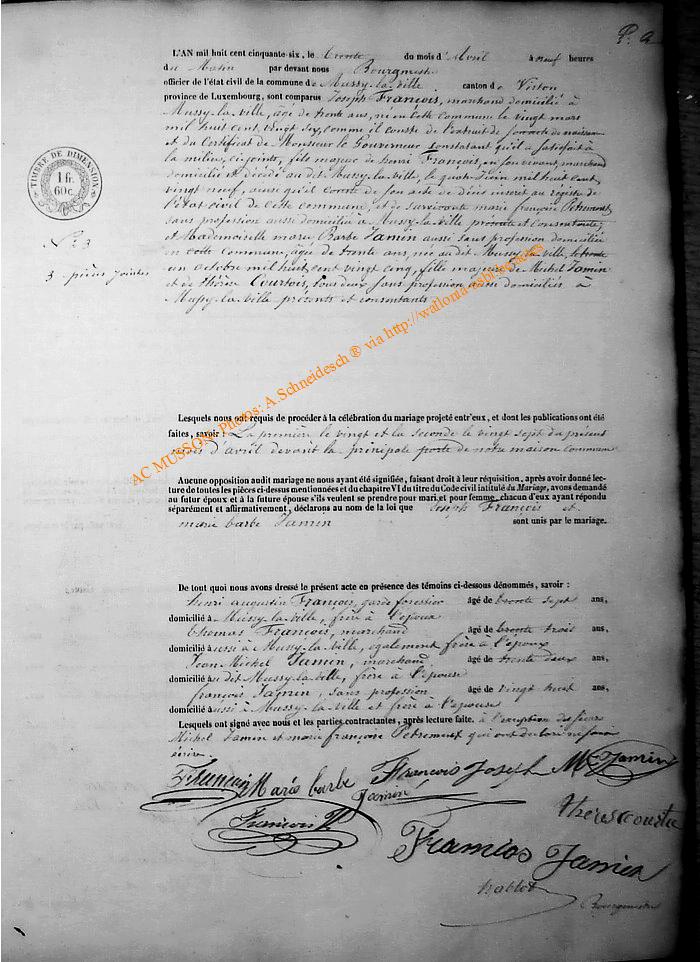 P. a
L'AN mil huit cent cinquante-six, le trente du mois d'avril à neuf heures
du Matin par devant nous Bourgmestre
officier de l'état civil de la commune de Mussy-la-ville canton de Virton
province de Luxembourg, sont comparus Joseph François, marchand domicilié à
Mussy-la-ville, âgé de trente ans, né en cette commune le vingt mars
mil huit cent vingt six, comme il conste de l'extrait de son acte de naissance
et du Certificat de Monsieur le Gouverneur constatant qu'il a satisfait à
la milice, ci-joints, fils majeur de henri François, en son vivant, marchand
domicilié et décédé au dit Mussy-la-ville, le quatre Juin mil huit cent
vingt neuf, ainsi qu'il conste de son acte de décès inscrit au registre de
l'état civil de cette commune, et de survivante marie françoise Petrement
sans profession aussi domiciliée à Mussy-la-ville présente et consentante,
et Mademoiselle marie Barbe Jamin aussi sans profession domiciliée
en cette commune, âgée de trente ans, née au dit Mussy-la-ville, le trente
un octobre mil huit cent vingt cinq, fille majeure de Michel Jamin
et de thérèse Courtois, tous deux sans profession aussi domiciliés à
Mussy-la-ville présents et consentants
TIMBRE DE DIMENSION
1 fr.
60c.
N° 3
3 pièces jointes
Lesquels nous ont requis de procéder à la célébration du mariage projeté entr'eux, et dont les publications ont été
faites, savoir : La première le vingt et la seconde le vingt sept du présent
mois d'avril devant la principale porte de notre maison commune
Aucune opposition audit mariage ne nous ayant été signifiée, faisant droit à leur réquisition, après avoir donné lec-
ture de toutes les pièces ci-dessus mentionnées et du chapitre VI du titre du Code civil intitulé du Mariage, avons demandé
au futur époux et à la future épouse s'ils veulent se prendre pour mari et pour femme, chacun d'eux ayant répondu
séparément et affirmativement, déclarons au nom de la loi que Joseph François et
marie barbe Jamin sont unis par le mariage.
De tout quoi nous avons dressé le présent acte en présence des témoins ci-dessous dénommés, savoir :
henri augustin François, garde forestier âgé de trente sept ans,
domicilié à Mussy-la-ville, frère à l'époux
thomas François, marchand âgé de trente trois ans,
domicilié aussi à Mussy-la-ville, également frère à l'époux
Jean Michel Jamin, marchand âgé de trente deux ans,
domicilié au dit Mussy-la-ville, frère à l'épouse
françois Jamin, sans profession âgé de vingt huit ans,
domicilié aussi à Mussy-la-ville et frère à l'épouse
Lesquels ont signé avec nous et les parties contractantes, après lecture faite. à l'exception des sieurs
Michel Jamin et marie françoise Petrement qui ont déclaré ne savoir
écrire.
François Marie barbe Jamin François Joseph M Jamin
François T. theres courtoi
Framcios Jamien
Bourgmestre
AC MUSSON, Photos: A. Schneidesch ® via http://wallonia-asbl.eu/actes